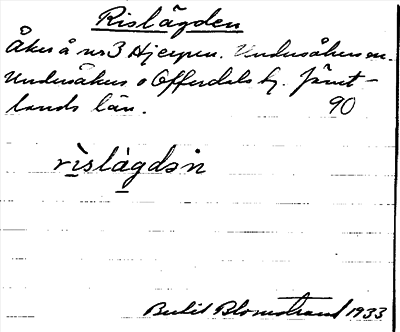 Rislägden
Åker å nr 3 Hjerpen. Undersåkers sn.
Undersåkers o Offerdals tg. Jämt-
lands län. 90
rìslàgdən
Bertil Blomstrand 1933